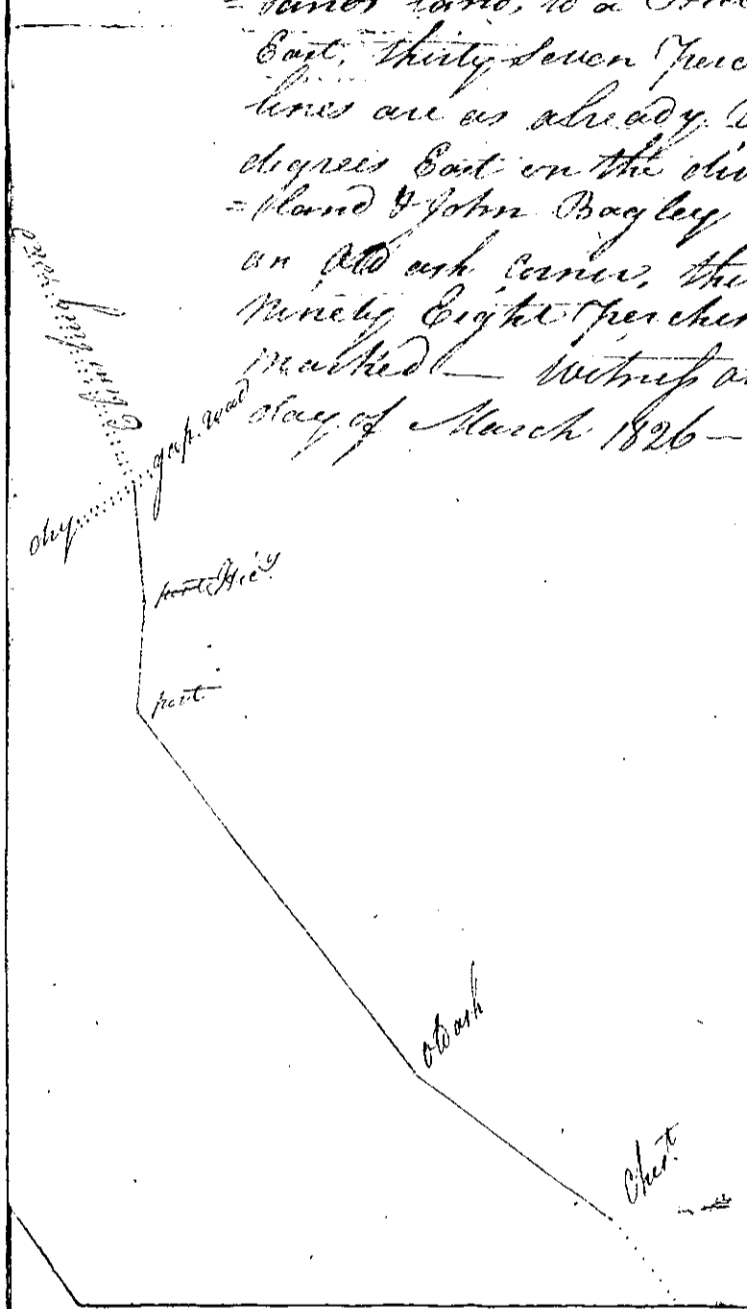 land, to a
East, thirty Seven Perc
lines are as already D
degrees East on the div
=land & John Bagley
an Old ash corner, the
Ninety Eight Perches
marked — witness
day of March 1826 —
gap road
dry
post Hicy
post
old ash
Chest